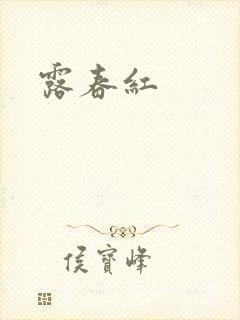 露春紅
侯寶峰